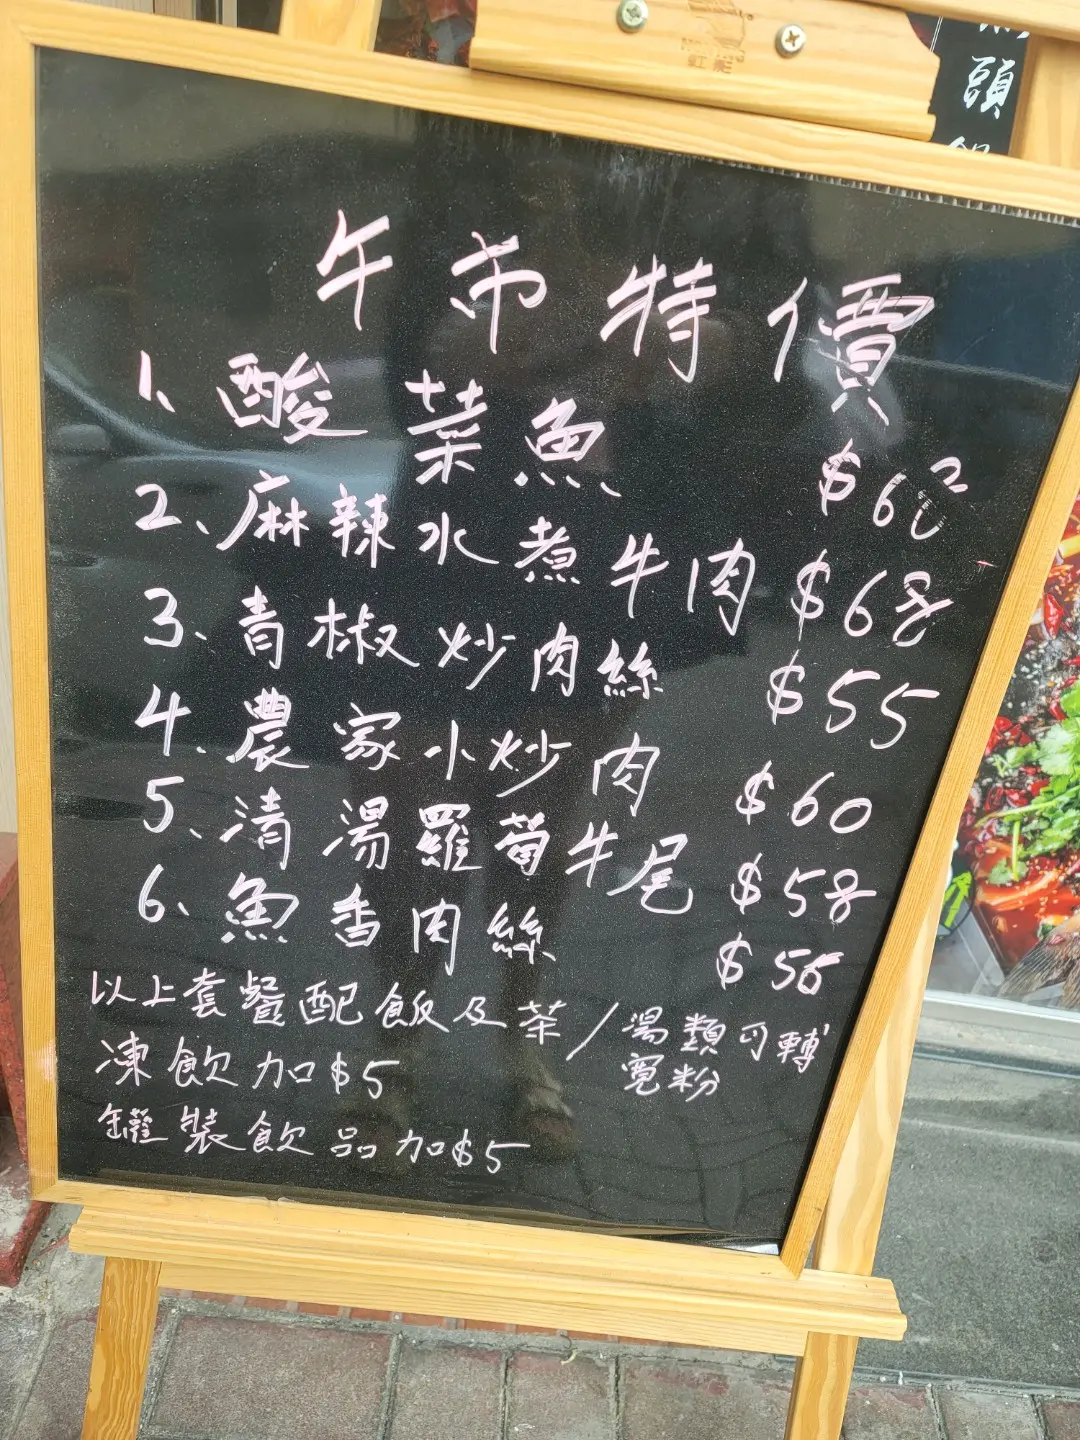 頭
午市特價
1、酸菜魚 $62
2、麻辣水煮牛肉 $68
3、青椒炒肉絲 $55
4、農家小炒肉 $60
5、清湯羅蔔牛尾 $58
6、魚香肉絲 $56
以上套餐配飯及茶/湯類可轉寬粉
凍飲加$5
罐裝飲品加$5